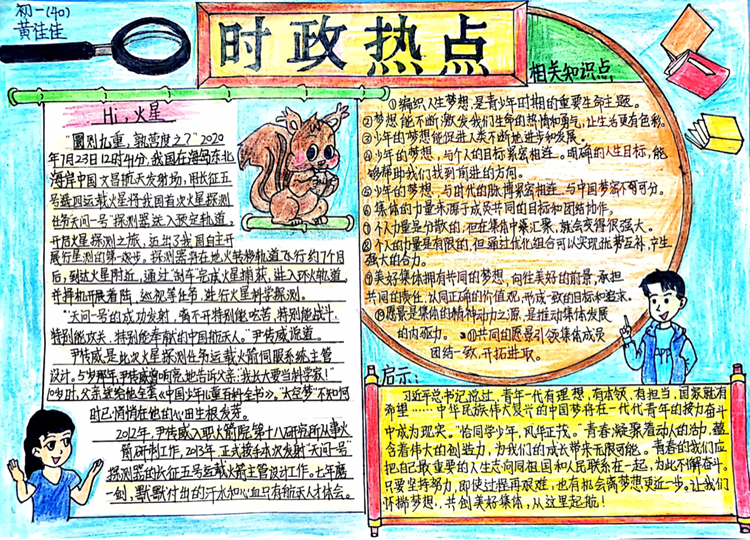 初一(40)
黄佳佳
时政热点
Hi,火星
"圜则九重，孰营度之？"2020
年7月23日12时41分，我国在海岛东北
海岸中国文昌航天发射场，用长征五
号遥四运载火星将我国首次火星探测
任务天问一号探测器送入预定轨道，
开启火星探测之旅，迈出了我国自主开
展行星测的第一步。探测器将在地火转移轨道飞行约7个月
后，到达火星附近，通过刹车完成火星捕获，进入环火轨道，
并择机开展着陆，巡视等任务，进行火星科学探测。
"天问一号的成功发射，离不开特别能吃苦，特别能战斗，
特别能攻关，特别能奉献的中国航天人。"尹传威派道。
尹传威是此次火星探测任务运载火箭伺服系统主管
设计。5岁那年，尹传威响亮地告诉父亲："我长大要当科学家！"
10岁时，父亲送给他全套《中国少儿童百科全书》。太空梦不知何
时已悄悄在他的心田生根发芽。
2012年，尹传威入职火箭院第十八研究所从事火
箭研制工作，2013年，正式接手本次发射"天问一号"
探测器的长征五号运载火箭主管设计工作。七年磨
一剑，默默付出的汗水和心血只有航天人才体会。
相关知识点：
①编织人生梦想，是青少年时期的重要生命主题。
②梦想能不断激发我们生命的热情和勇气，让生活更有色彩。
③少年的梦想能促进人类不断地进步和发展。
④少年的梦想，与个人的目标紧密相连。明确的人生目标，能
够帮助我们找到前进的方向。
⑤少年的梦想，与时代的脉搏紧密相连，与中国梦密不可分。
⑥集体的力量来源于成员共同的目标和团结协作。
⑦个人力量是分散的，但在集体中来汇聚，就会变得很强大。
⑧个人的力量是有限的，但通过优化组合可以实现优势互补，产生
强大的合力。
⑨美好集体拥有共同的梦想，向往美好的前景，承担
共同的责任，认同正确的价值观，形成一致的目标和追求。
⑩愿景是集体的精神动力之源，是推动集体发展
的内驱力。⑪共同的愿景引领集体成员
团结一致，开拓进取。
启示：
习近平总书记说过，青年一代有理想，有本领，有担当，国家就有
希望……中华民族伟大复兴的中国梦将在一代代青年的接力奋斗
中成为现实。"恰同学少年，风华正茂。"青春凝聚着动人的活力，蕴
含着伟大的创造力，为我们的成长带来无限可能。青春的我们应
把自己最重要的人生志向同祖国和人民联系在一起，为此不懈奋斗。
只要坚持努力，即使过程再艰难，也有机会离梦想更近一步。让我们
怀揣梦想，共创美好集体，从这里起航！